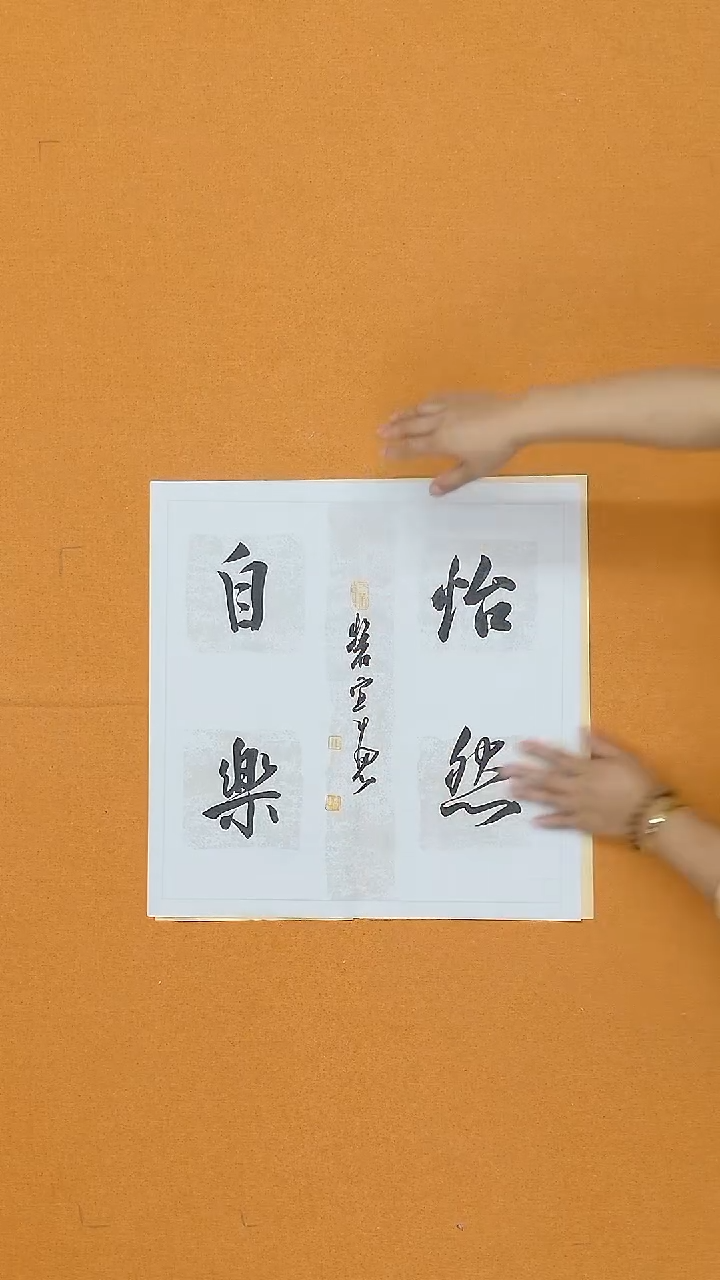 怡然
自樂